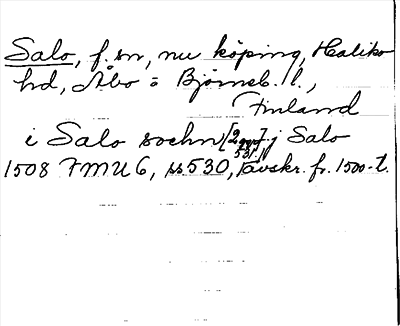 Salo, f. sn, nu köping, Haliko
hd, Åbo o Björneb. l.,
Finland
i Salo sochn [2 ggr] j Salo
1508 FMU 6, ss 530, 531. avskr. fr. 1500-t.